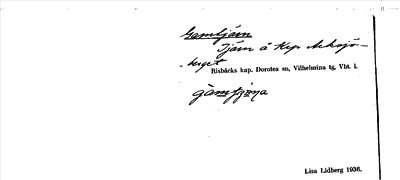 Gamtjärn
Tjärn å Kup Arksjö-
berget
Risbäcks kap. Dorotea sn, Vilhelmina tg, Vbt. l.
Lisa Lidberg 1936.